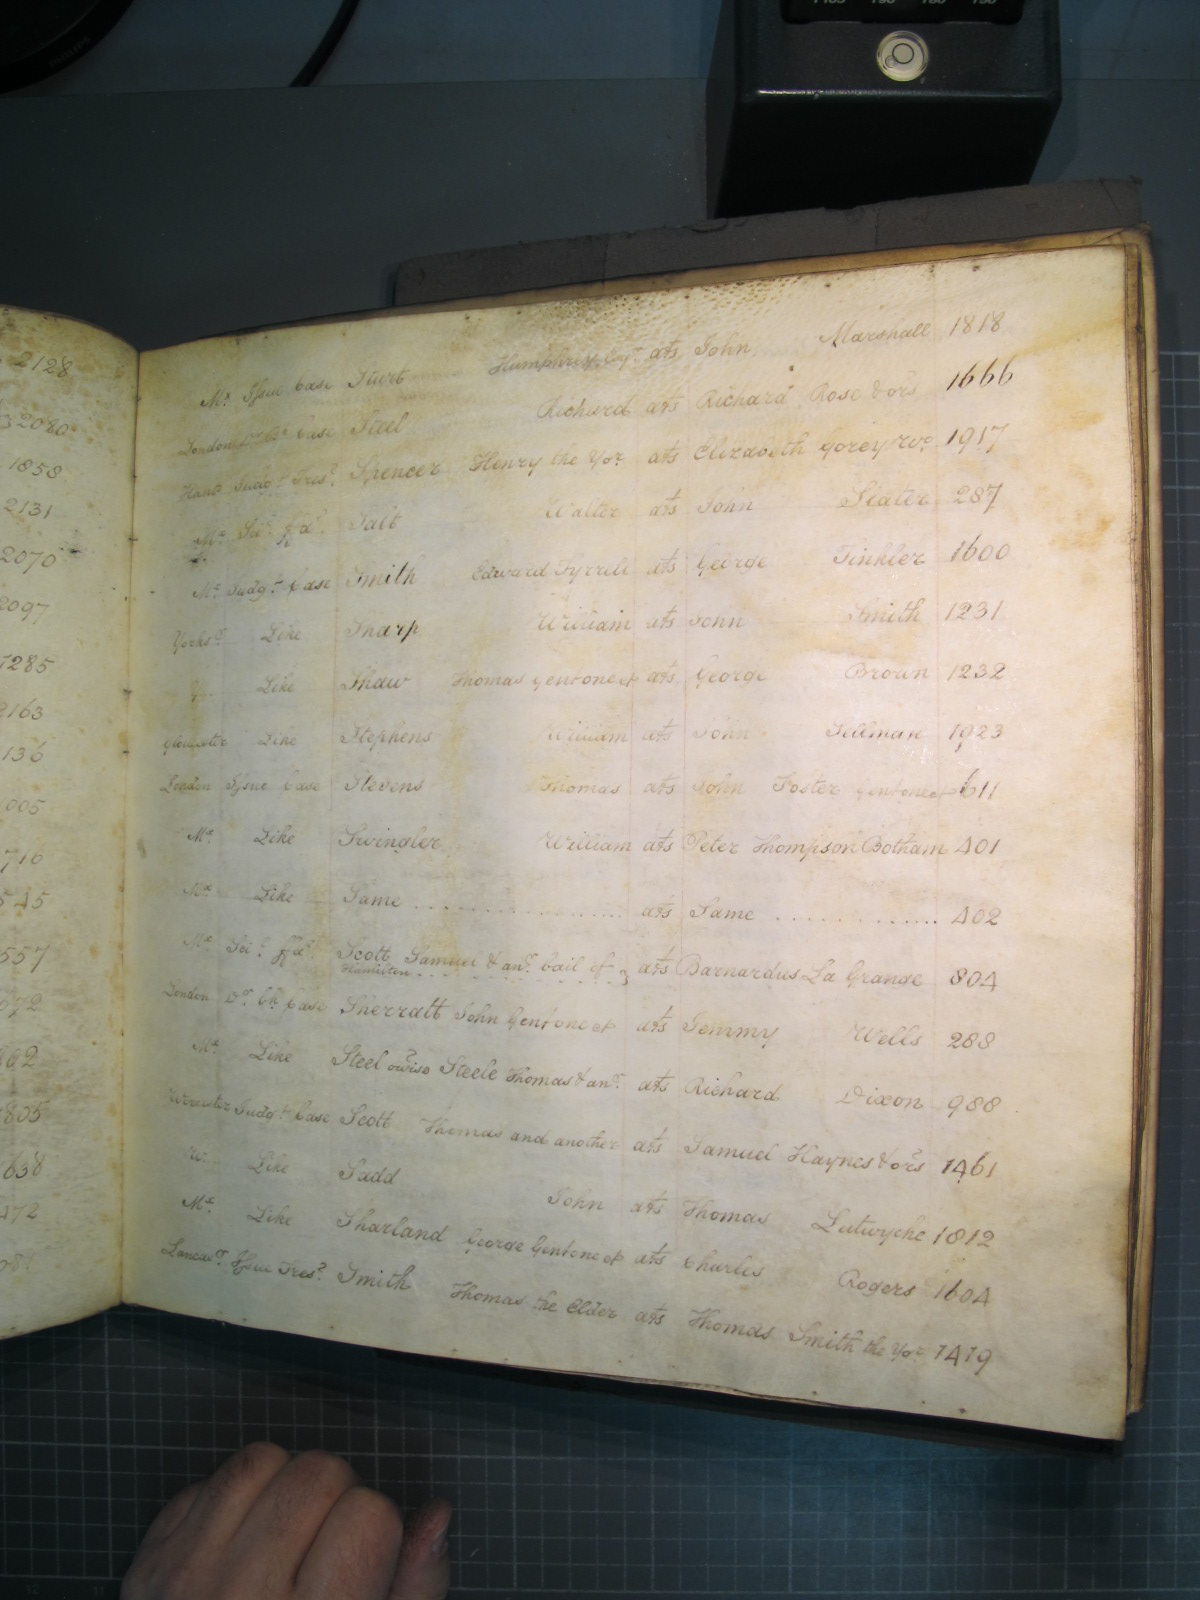 2128
2080
1858
2131
2070
2097
1285
2163
136
005
716
545
557
672
862
805
638
472
Mx. Issue Case Sturt Humphry Esqr. ats John Marshall 1818
London Case Steel Richard ats Richard Rose & ors. 1666
Hants Judgt. Tres. Spencer Henry the Yor. ats Elizabeth Gorey 1917
Mx. Sci. ffas. Salt Walter ats John Slater 287
Mx. Judgt. Case Smith Edward Tyrrell ats George Tinkler 1600
Yorks. Like Sharp William ats John Smith 1231
Like Shaw Thomas Gent one &c ats George Brown 1232
Gloucester Like Stephens William ats John Sellman 1923
London Issue Case Stevens Thomas ats John Foster Gent one &c 611
Mx. Like Swingler William ats Peter Thompson Botham 401
Mx. Like Same ats Same 402
Mx. Sci. ffas. Scott Samuel & anr. bail of ats Barnardus La Grange 804
Hamilton
London Case Sherratt John Gent one &c ats Jemmy Wells 288
Mx. Like Steel orwise Steele Thomas & anr. ats Richard Dixon 988
Worcester Judgt. Case Scott Thomas and another ats Samuel Haynes & ors. 1461
Like Sadd John ats Thomas Lutwyche 1812
Mx. Like Sharland George Gent one &c ats Charles Rogers 1604
Lancasr. Issue Tres. Smith Thomas the Elder ats Thomas Smith the Yor. 1419